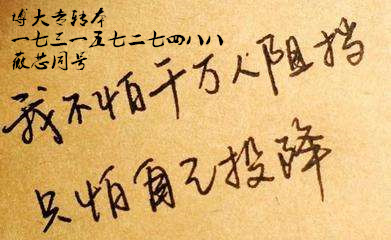 博大专转本
一七三一五七二七四八八
蔽芯同号
我不怕千万人阻挡
只怕自己投降